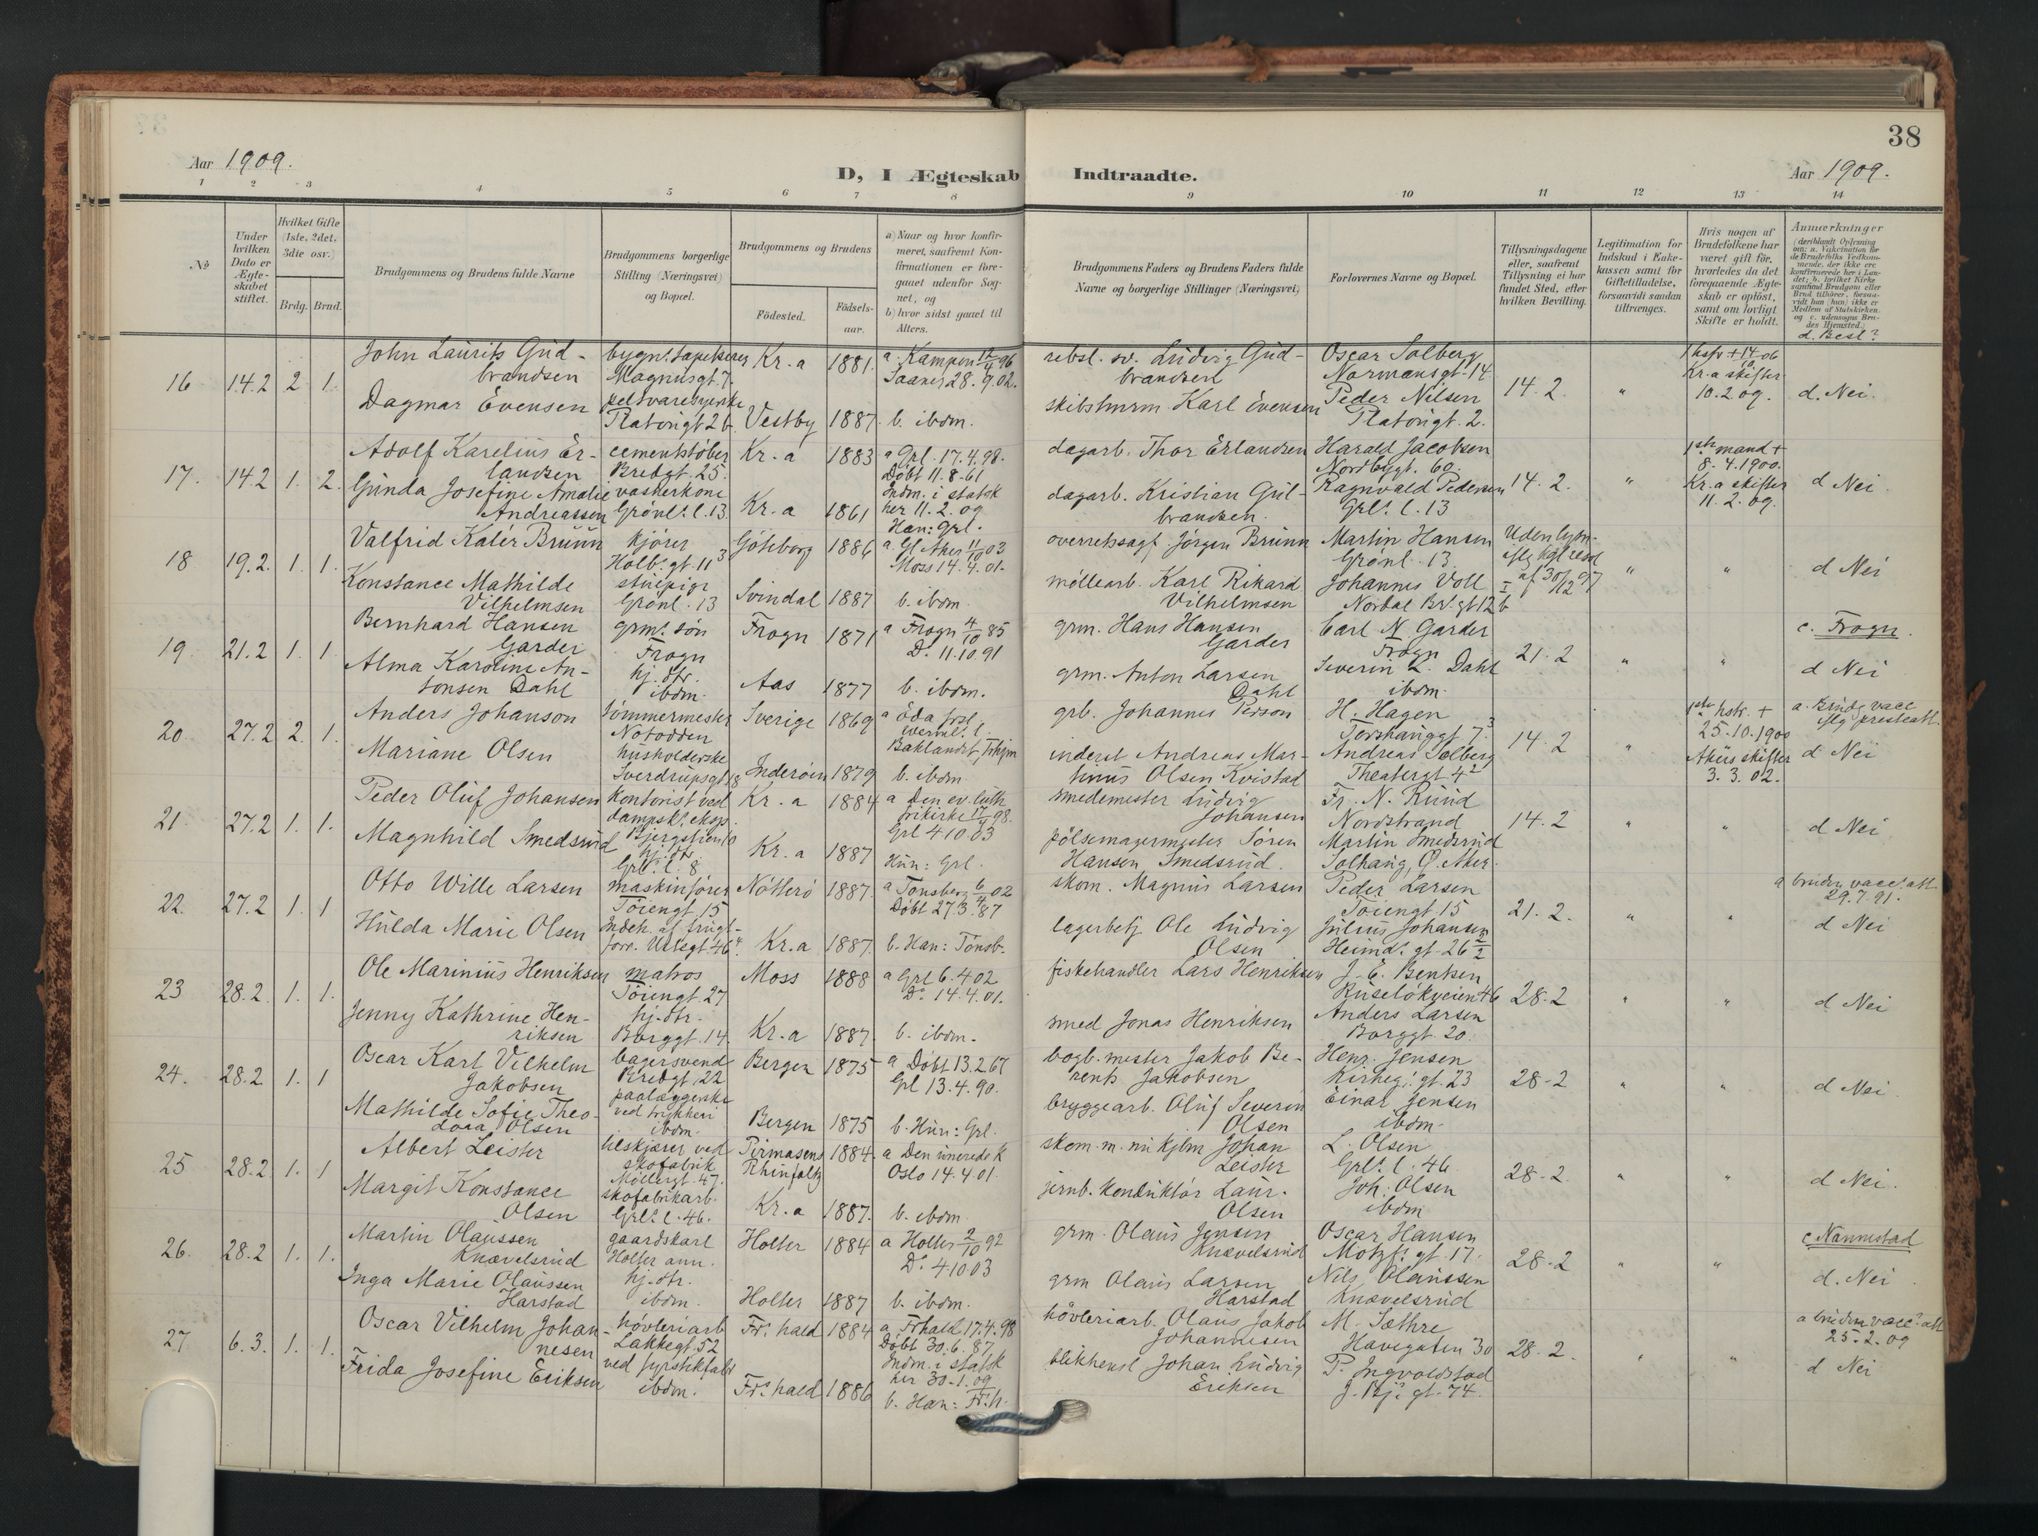 38
Aar 1909.
D, I Ægteskab Indtraadte.
Aar 1909.
1 2 3 4 5 6 7 8 9 10 11 12 13 14
No
Under hvilken Dato er Ægteskabet stiftet.
Hvilket Gifte (1ste, 2det, 3die osv.)
Brdg. Brud.
Brudgommens og Brudens fulde Navne
Brudgommens borgerlige Stilling (Næringsvei) og Bopæl.
Brudgommens og Brudens
Fødested. Fødselsaar.
a) Naar og hvor konfirmeret, saafremt Konfirmationen er foregaaet udenfor Sognet, og
b) hvor sidst gaaet til Alters.
Brudgommens Faders og Brudens Faders fulde Navne og borgerlige Stillinger (Næringsvei)
Forlovernes Navne og Bopæl.
Tillysningsdagene eller, saafremt Tillysning ei har fundet Sted, efter hvilken Bevilling.
Legitimation for Indskud i Enkekassen samt for Giftetilladelse, forsaavidt saadan tiltrænges.
Hvis nogen af Brudefolkene har været gift før, hvorledes da det foregaaende Ægteskab er opløst, samt om lovligt Skifte er holdt.
Anmærkninger
d. Besl?
16 14.2 2 1.
John Laurits Gudbrandsen
bygn. tapetserer Magnusgt. 7.
Kr.a 1881.
a. Kampen 12/4 96
Saaner 28.9.02.
Ludvig Gudbrandsen
Oscar Solberg
Normansgt. 14
14.2. "
1 hstr + 14/10 06
Kr.a skifter
10.2.09.
d. Nei.
Dagmar Evensen
pelsvaresyerske
Platousgt 2b.
Vestby 1887.
b. ibdm.
Karl Evensen
Peder Nilsen
Platousgt. 2.
17. 14.2 1. 2.
Adolf Karelius Erlandsen
cementstøber
Bredgt. 25.
Kr.a 1883
a Grl. 17.4.98.
dagarb. Thor Erlandsen
Harald Jacobsen
Nordbygt. 60.
14.2. "
1ste mand +
8.4.1900.
Kr.a skifter
11.2.09.
d Nei.
Gunda Josefine Amalie Andreassen
vaskerkone
Grønl. l. 13.
Kr.a 1861
Døbt 11.8.61
Indm. i statsk
her 11.2.09
Han: Grl.
dagarb. Kristian Gulbrandsen.
Ragnvald Pedersen
Grl. l. 13
18 19.2. 1. 1.
Valfrid Kalér Brunn
kjører
Holb. gt. 11
Gøteborg 1886
a. Gl. Aker 11/10 03
Jørgen Brunn
Martin Hansen
Grønl. 13
Uden lysn.
" "
d Nei
Konstance Mathilde Vilhelmsen
stuepige
Grønl. 13
Svindal 1887
Moss 14.4.01.
b. ibdm.
møllearb. Karl Rikard Vilhelmsen
Johannes Voll
19 21.2 1. 1.
Bernhard Hansen Garder
grm. søn
Frogn
Frogn 1871
a Frogn 4/10 85
Do. 11.10.91
grm. Hans Hansen Garder
Carl N Garder
Frogn
21.2 " "
c. Frogn.
d Nei
Alma Karoline Antonsen Dahl
hj. dtr.
ibdm.
Aas 1877
b. ibdm.
grm. Anton Larsen Dahl
Severin L. Dahl
ibdm.
20. 27.2 2. 1.
Anders Johanson
tømmermester
Notodden
Sverige 1869
grb. Johannes Person
H. Hagen
14.2 "
1ste hstr. +
25.10.1900
Akers skifter
3.3.02.
d Nei
Mariane Olsen
husholderske
Sverdrupsgt 18
Inderøen 1879
b. ibdm.
inderst Andreas Marthinus Olsen Kvistad
Andreas Solberg
Theatergt 4
21. 27.2 1. 1.
Peder Oluf Johansen
kontorist ved
dampsk. eksp.
Kr.a 1884
a Den ev. luth
frikirke 17/4 98.
smedemester Ludvig Johansen
Fr. N. Ruud
Nordstrand
14.2 " "
d Nei
Magnhild Smedsrud
hj. dtr
Grl. l. 8
Kr.a 1887
Grl 4.10.03
Hun: Grl.
pølsemagermester Søren Hansen Smedsrud.
Martin Smedsrud
Solhaug, Ø. Aker.
22. 27.2 1. 1
Otto Wille Larsen
maskinfører
Tøiengt 15
Nøtterø 1887.
a Tønsberg 6/4 02
skom. Magnus Larsen
Peder Larsen
Tøiengt 15
21.2. " "
a bruden vacc. att
29.7.91.
d Nei
Hulda Marie Olsen
Kr.a 1887.
Døbt 27.3.87
b. Han: Tønsb.
lagerbetj Ole Ludvig Olsen
Julius Johansen
Heimd. gt. 26
23 28.2. 1. 1.
Ole Marinius Henriksen
matros
Tøiengt. 27
Moss 1888
a Grl 6.4.02
fiskehandler Lars Henriksen
J. E. Bentsen
Ruseløkveien 46
28.2 " "
d Nei
Jenny Kathrine Henriksen
hj. dtr.
Borggt. 14.
Kr.a 1887.
Do. 14.4.01.
b. ibdm.
smed Jonas Henriksen
Anders Larsen
Borggt 20.
24. 28.2. 1. 1
Oscar Karl Vilhelm Jakobsen
bagersvend
Bredgt. 22
Bergen 1875
a Døbt 13.2.67
bogb. mester Jakob Berents Jakobsen
Henr. Jensen
Kirkeg. gt. 23
28.2 " "
d Nei.
Mathilde Sofie Theodora Olsen
paalæggerske
ved trykkeri
ibdm.
Bergen 1875
Grl 13.4.90.
b. Hun: Grl.
bryggearb. Oluf Severin Olsen
Einar Jensen
ibdm.
25 28.2. 1. 1
Albert Leister
tilskjærer ved
skofabrik
Møllergt. 47.
Pirmasens
Rhinfaltz
1884.
a Den unerede k
Johan Leister
L. Olsen
Grl. l. 46
28.2. " "
d Nei.
Margit Konstance Olsen
skofabrikarb.
Grl. l. 46.
Kr.a 1887.
Oslo 14.4.01.
b. ibdm.
jernb. konduktør Laur. Olsen
Joh. Olsen
ibdm
26. 28.2. 1. 1.
Martin Olaussen Knævelsrud
gaardskarl
Holter ann.
Holter 1884
a Holter 2/10 92
grm. Olaus Jensen Knævelsrud
Oscar Hansen
Motzf. gt. 17.
28.2 " "
c. Nannestad
d. Nei
Inga Marie Olaussen Harstad
hj. dtr.
ibdm.
Holter 1887
Do. 4.10.03
b. ibdm.
grm Olaus Larsen Harstad
Nils Olaussen
Knævelsrud
27 6.3. 1. 1.
Oscar Vilhelm Johannesen
høvleriarb
Lakkegt. 52
Fr. hald 1884
a. Frhald 17.4.98
høvleriarb. Olaus Jakob Johannesen
M. Sæthre
Havegaten 30
28.2. " "
a bruden vacc. att
25.2.09
d Nei
Frida Josefine Eriksen
ved fyrstikfabr
ibdm.
Fr. hald 1886
Døbt 30.6.87
Indm. i statsk
her 30.1.09
b. Han: Fr.h.
blikkensl Johan Ludvig Eriksen
P. Ingvoldstad
J. Bj. gt. 74.